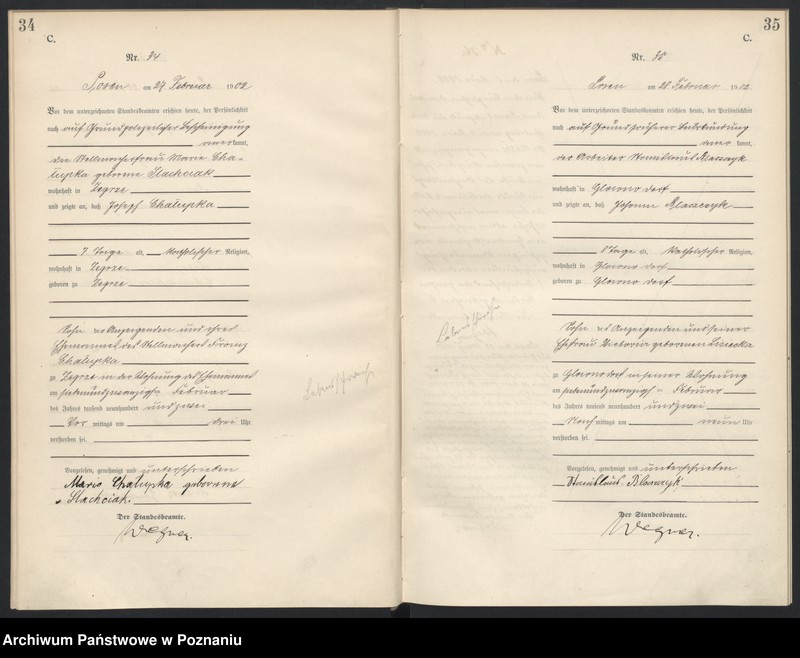 34
C.
Nr. 34
Posen am 27. Februar 1902
Vor dem unterzeichneten Standesbeamten erschien heute, der Persönlichkeit
nach auf Grund polizeilicher Bescheinigung
anerkannt,
die Stellmacherfrau Marie Cha-
łupka geborene Stachciak
wohnhaft in Zegrze
und zeigte an, daß Joseph Chałupka
7 Tage alt, katholischer Religion,
wohnhaft in Zegrze
geboren zu Zegrze
Sohn der Anzeigenden und ihres
Ehemannes des Stellmachers Franz
Chałupka
zu Zegrze in der Wohnung des Ehemannes
am siebenundzwanzigsten Februar
des Jahres tausend neunhundert und zwei
Vor mittags um drei Uhr
verstorben sei.
Vorgelesen, genehmigt und unterschrieben
Marie Chałupka geborene
Stachciak.
Der Standesbeamte.
Wegner.
Lebensschwäche
35
C.
Nr. 35
Posen am 28. Februar 1902
Vor dem unterzeichneten Standesbeamten erschien heute, der Persönlichkeit
nach auf Grund früherer Beurkundung
anerkannt,
der Arbeiter Stanislaus Błaszczyk
wohnhaft in Głowno dorf
und zeigte an, daß Johann Błaszczyk
8 Tage alt, katholischer Religion,
wohnhaft in Głowno dorf
geboren zu Głowno dorf
Sohn des Anzeigenden und seiner
Ehefrau Victoria geborenen Lisiecka
zu Głowno dorf in seiner Wohnung
am siebenundzwanzigsten Februar
des Jahres tausend neunhundert und zwei
Nach mittags um neun Uhr
verstorben sei.
Vorgelesen, genehmigt und unterschrieben
Stanislaus Błaszczyk
Der Standesbeamte.
Wegner.
Lebensschwäche
Archiwum Państwowe w Poznaniu